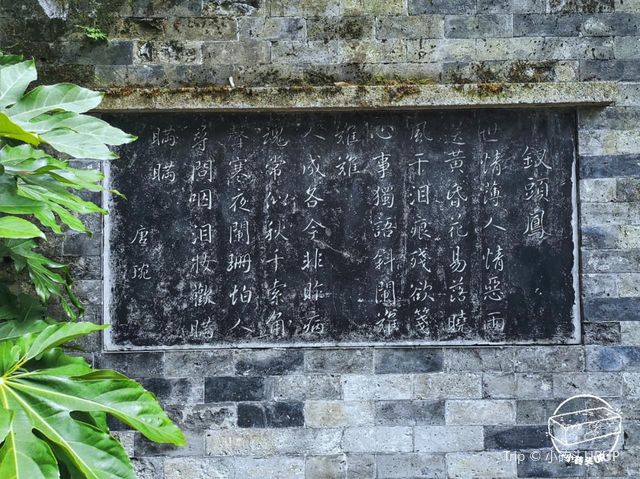 釵頭鳳
世情薄人情惡雨
送黃昏花易落曉
風干泪痕殘欲箋
心事獨語斜闌難
難難
人成各今非昨病
魂常似秋千索角
聲寒夜闌珊怕人
尋問咽泪妝歡瞞
瞞瞞
唐琬
Trip ©